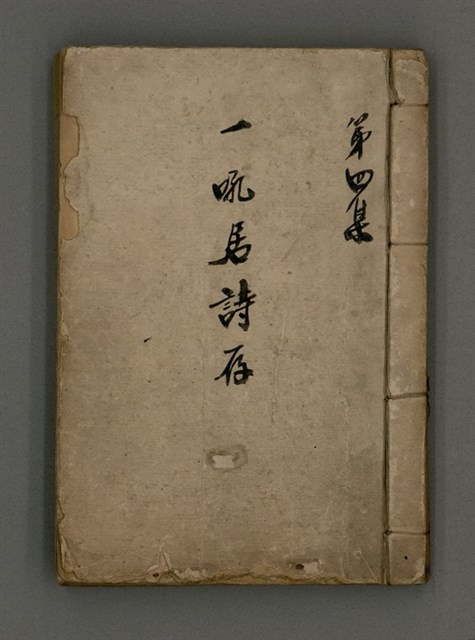 第四集
一吼居詩存